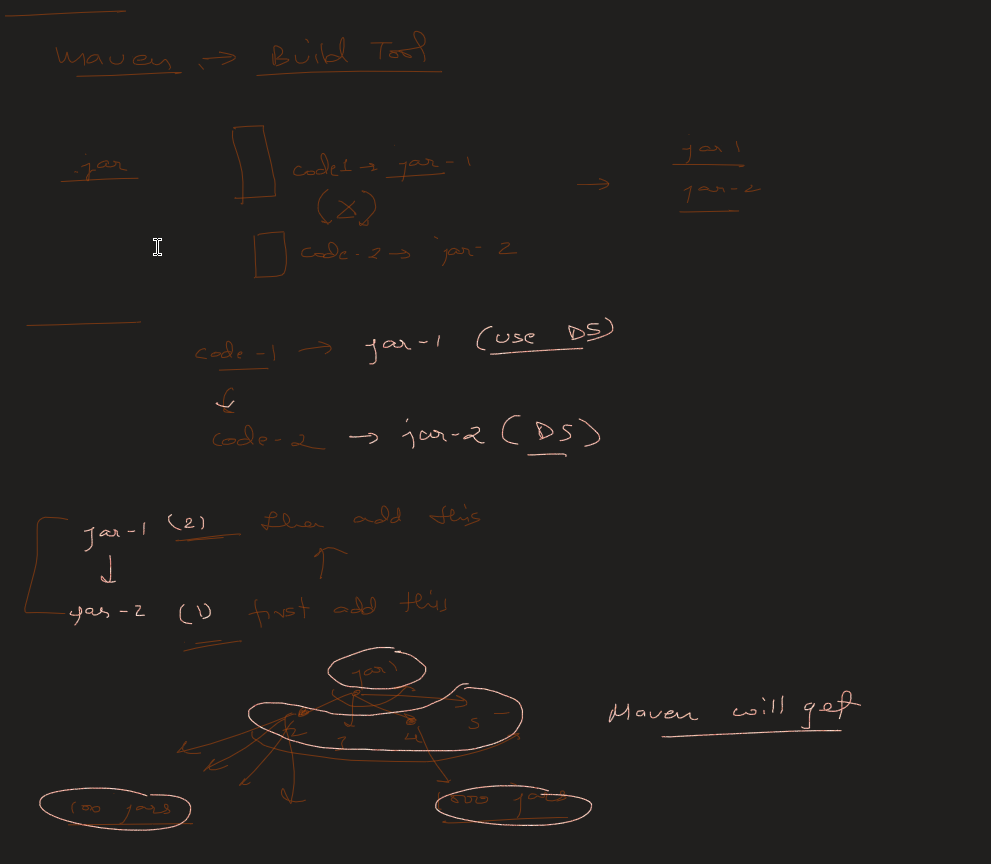 Maven → Build Tool
.jar
code1 → jar-1
(X)
code-2 → jar-2
→ jar1
jar-2
code-1 → jar-1 (use DS)
↓
code-2 → jar-2 (DS)
jar-1 (2) then add this
↓ ↑
jar-2 (1) first add this
jar1
2 3 4 5 -
Maven will get
100 jars
1000 jars